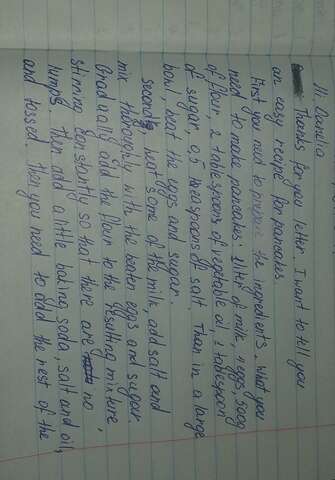 Hi. Daniila
Thanks for you letter. I want to tell you
an easy recipe for pancakes.
First you need to prepare the ingredients. What you
need to make pancakes: liter of milk, 4 eggs, 500g
of flour, 2 tablespoons of vegetable oil, 1 tablespoon
of sugar, 0,5 teaspoons of salt. Than in a large
bowl, beat the eggs and sugar.
Second, heat some of the milk, add salt and
mix thoroughly with the beaten eggs and sugar.
Gradually add the flour to the resulting mixture,
stirring constantly so that there are no
lumps. Then add a little baking soda, salt and oil,
and tossed. Then you need to add the rest of the